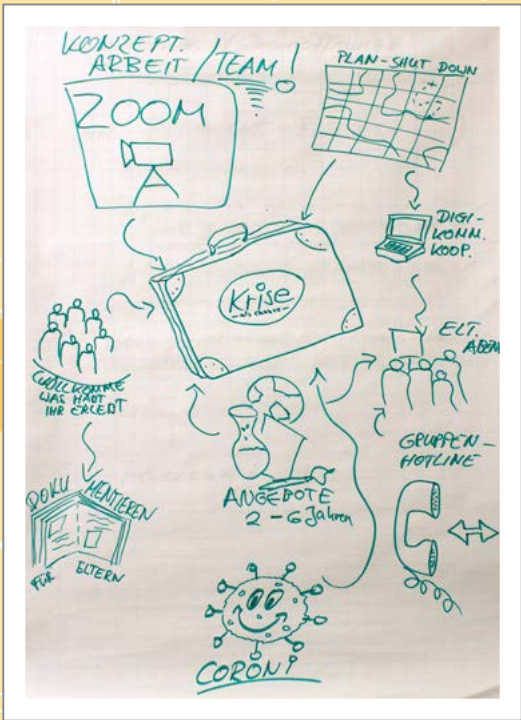 KONZEPT.
ARBEIT / TEAM!
ZOOM
PLAN-SHUT DOWN
DIGI-
KOMM.
KOOP.
Krise
als chance
WILLKOMME
WAS HABT
IHR ERLEBT
ELT.
ABEN
GRUPPEN-
HOTLINE
ANGEBOTE
2-6 Jahren
DOKUMENTIEREN
FÜR ELTERN
CORONI